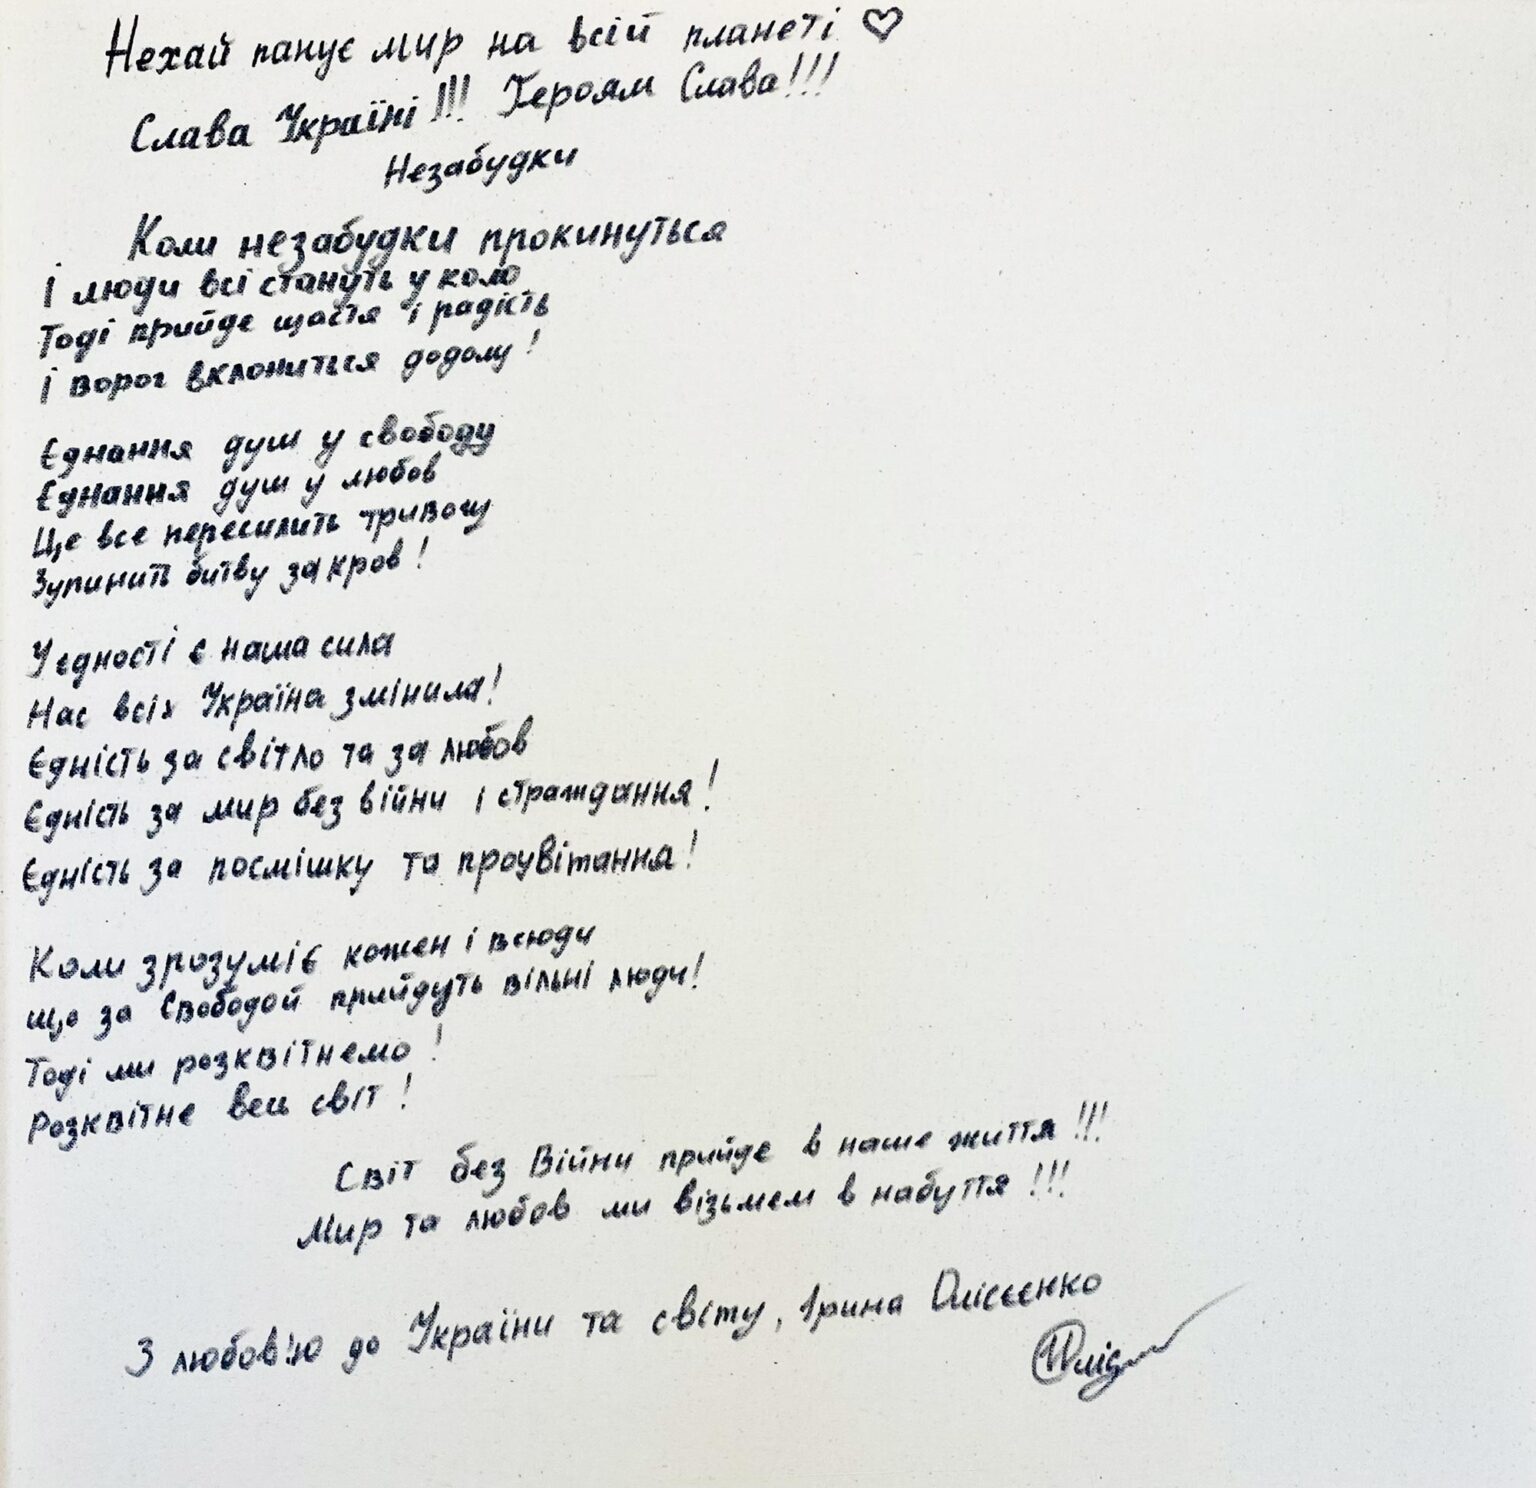 Нехай панує мир на всій планеті ♡
Слава Україні!!! Героям Слава!!!
Незабудки
Коли незабудки прокинуться
І люди всі стануть у коло
Тоді прийде щастя і радість
І ворог вклониться додолу!
Єднання душ у свободу
Єднання душ у любов
Це все пересилить тривогу
Зупинить битву за кров!
У єдності є наша сила
Нас всіх Україна змінила!
Єдність за світло та за любов
Єдність за мир без війни і страждання!
Єдність за посмішку та процвітання!
Коли зрозуміє кожен і всюди
що за Свободой прийдуть вільні люди!
Тоді ми розквітнемо!
Розквітне весь світ!
Світ без Війни прийде в наше життя!!!
Мир та любов ми візьмем в набуття!!!
З любов'ю до України та світу, Ірина Олісєєнко